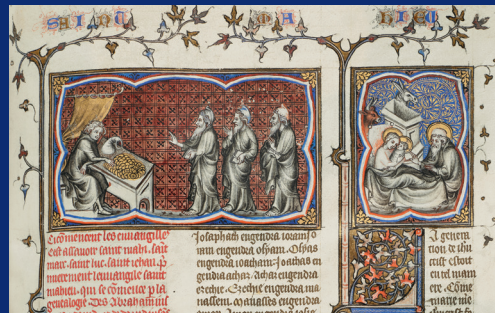 SAINT MA HIEU
Cy comencent les euuangilles
cest assauoir saint mahi. saint
marc. saint luc. saint iehan. p
mierement leuuangile saint
mahieu. qui se comence p la
genealogie Des Abraham
Josaphath engendra ioram Jo
ram engendra osyam. Osyas
engendra ioatham. Joathas en
gendra achaz. Achaz engendra
ezechie. Ezechie engendra ma
nassem. Manasses engendra
A genera
tion de ihu
crist estoit
en tel mani
ere. Cõme
marie